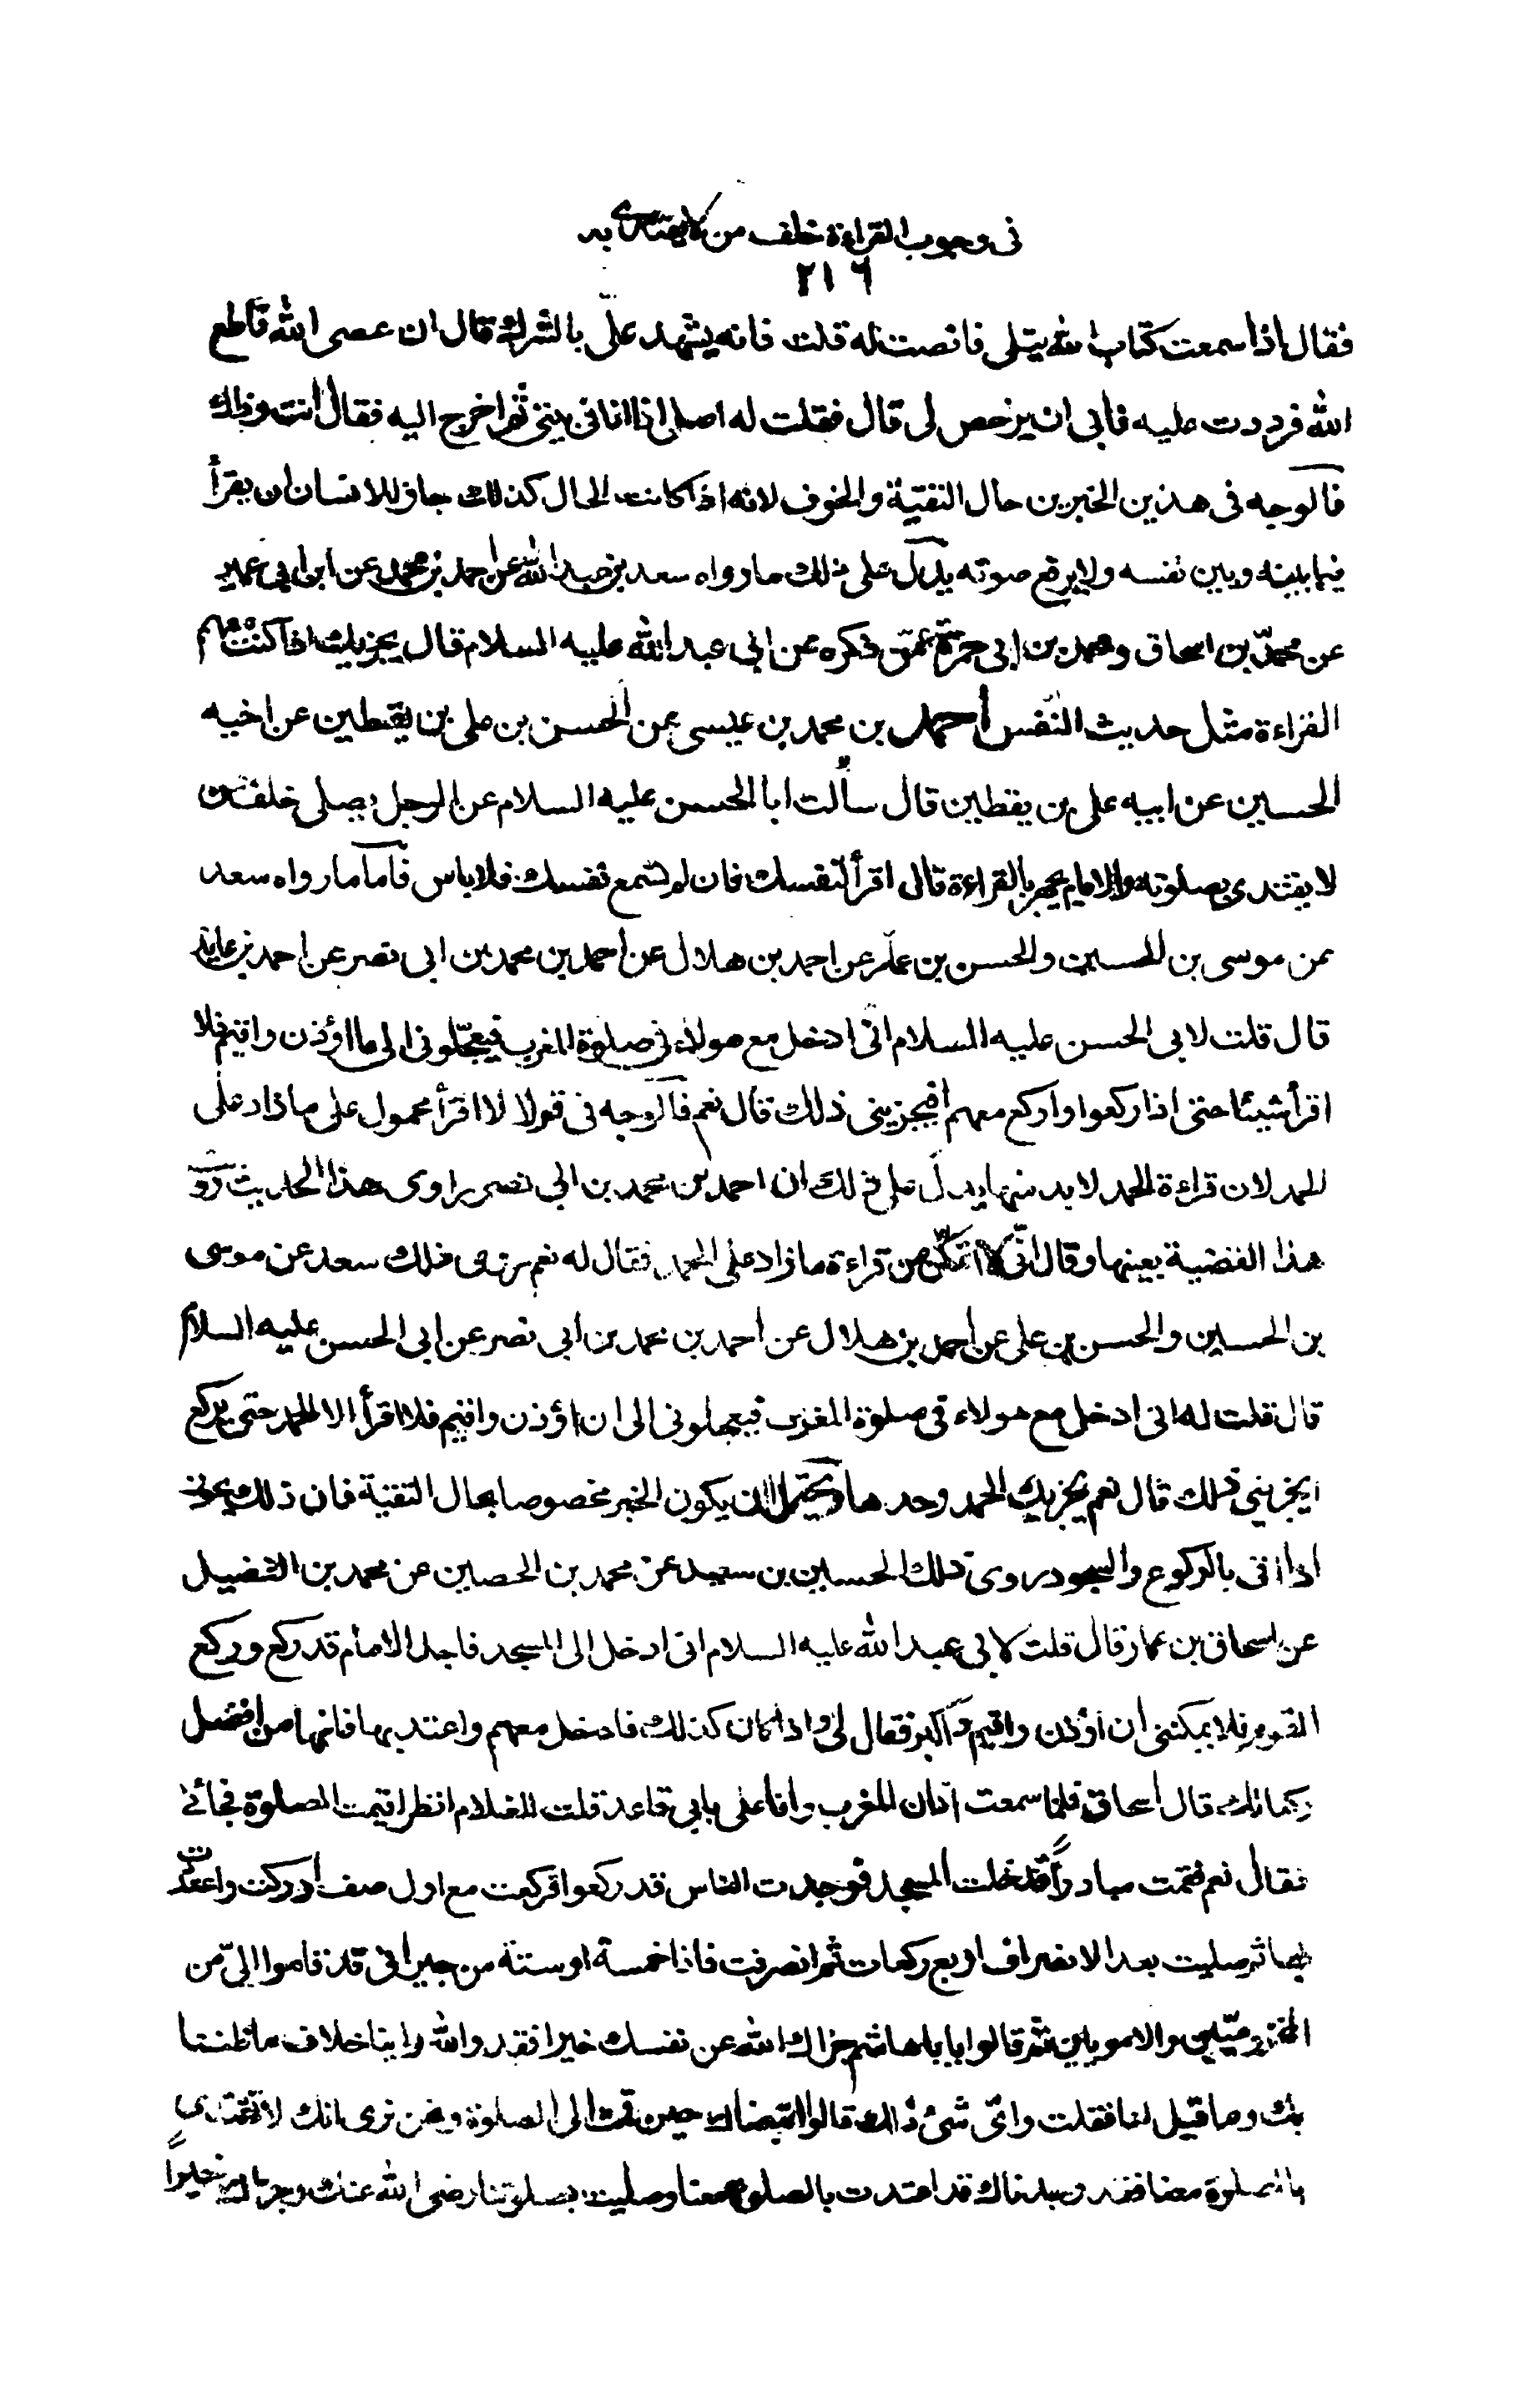 فى وجوب القراءة خلف من لا يقتدى به
٢١٦
فقال اذا سمعت كتاب الله يتلى فانصت له قلت فانه يشهد علىّ بالشرك قال ان عصى الله فأطع
الله فرددت عليه فأبى ان يرخص لى قال فقلت له اصلى اذا انا فى بيتى ثم اخرج اليه فقال انت وذلك
فالوجه فى هذين الخبرين حال التقيّة والخوف لانه اذا كانت الحال كذلك جاز للانسان ان يقرأ
فيما بينه وبين نفسه ولا يرفع صوته يدل على ذلك ما رواه سعد بن عبد الله عن احمد بن محمد عن ابن ابى عمير
عن محمّد بن اسحاق ومحمد بن ابى حمزة عمّن ذكره عن ابى عبد الله عليه السلام قال يجزيك اذا كنت معهم
القراءة مثل حديث النفس احمد بن محمد بن عيسى عن الحسن بن على بن يقطين عن اخيه
الحسين عن ابيه على بن يقطين قال سألت ابا الحسن عليه السلام عن الرجل يصلى خلف من
لا يقتدى بصلوته والامام يجهر بالقراءة قال اقرأ لنفسك فان لم تسمع نفسك فلا باس فأما ما رواه سعد
عن موسى بن الحسين والحسن بن على عن احمد بن هلال عن احمد بن محمد بن ابى نصر عن احمد بن عايذ
قال قلت لابى الحسن عليه السلام انّى ادخل مع هولاء فى صلوة المغرب فيعجّلونى الى ما اؤذن واقيم فلا
اقرأ شيئا حتى اذا ركعوا واركع معهم افيجزينى ذلك قال نعم فالوجه فى قوله لا اقرأ محمول على ما زاد على
الحمد لان قراءة الحمد لا بد منها يدلّ على ذلك ان احمد بن محمد بن ابى نصر راوى هذا الحديث روى
هذا القضية بعينها وقال انّى لا اتمكّن من قراءة ما زاد على الحمد فقال له نعم روى ذلك سعد عن موسى
بن الحسين والحسن بن على عن احمد بن هلال عن احمد بن محمد بن ابى نصر عن ابى الحسن عليه السلام
قال قلت له انى ادخل مع هولاء فى صلوة المغرب فيعجلونى الى ان اؤذن واقيم فلا اقرأ الا الحمد حتى يركع
ايجزينى ذلك قال نعم يجزيك الحمد وحدها ويحتمل ان يكون الخبر مخصوصا بحال التقية فان ذلك يجوز
اذا اتى بالركوع والسجود روى ذلك الحسين بن سعيد عن محمد بن الحصين عن محمد بن الفضيل
عن اسحاق بن عمار قال قلت لابى عبد الله عليه السلام انى ادخل الى المسجد فاجد الامام قد ركع وركع
القوم فلا يمكننى ان اؤذن واقيم واكبر فقال لى واذا كان كذلك فادخل معهم واعتد بها فانها من افضل
ركعاتك قال اسحاق فلما سمعت اذان المغرب وانا على بابى قاعد قلت للغلام انظر اقيمت الصلوة فجائنى
فقال نعم فقمت مبادراً فدخلت المسجد فوجدت الناس قد ركعوا فركعت مع اول صف ادركت واعتددت
بها ثم صليت بعد الانصراف اربع ركعات ثم انصرفت فاذا خمسة او ستة من جيرانى قد قاموا الىّ من
المخزوميّين والامويين ثم قالوا يا با هاشم جزاك الله عن نفسك خيرا فقد والله راينا خلاف ما ظننا
بك وما قيل لنا فقلت واىّ شئ ذلك قالوا اتبعناك حين قمت الى الصلوة ونحن نرى انك لا تقتدى
بالصلوة معنا فقد وجدناك قد اعتدت بالصلوة معنا وصليت بصلوتنا رضى الله عنك وجزاك خيراً